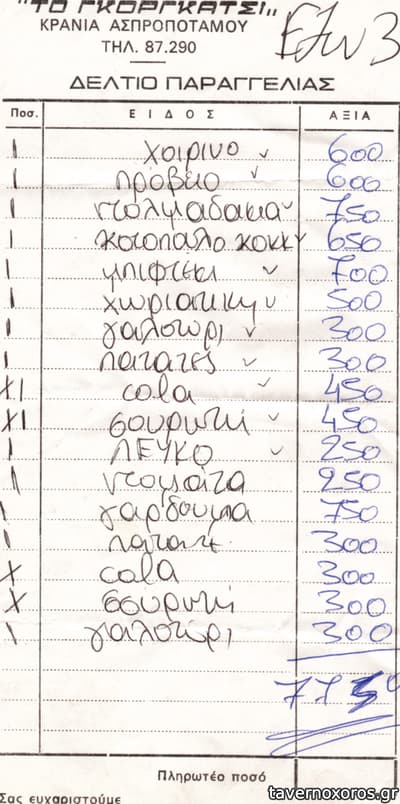 "ΤΟ ΓΚΟΡΓΚΑΤΣΙ„
ΚΡΑΝΙΑ ΑΣΠΡΟΠΟΤΑΜΟΥ
ΤΗΛ. 87.290
Εξω 3
ΔΕΛΤΙΟ ΠΑΡΑΓΓΕΛΙΑΣ
Ποσ. ΕΙΔΟΣ ΑΞΙΑ
1 χοιρινο ✓ 600
1 προβειο ✓ 600
1 ντολμαδακια ✓ 750
1 κοτοπουλο κοκκ ✓ 650
1 μπιφτεκι ✓ 700
1 χωριατικη ✓ 500
1 γαλοτυρι ✓ 300
1 πατατες ✓ 300
X1 cola ✓ 450
X1 σουρωτη ✓ 450
1 ΛΕΥΚΟ ✓ 250
1 ντοματα 250
1 γαρδουμπα 750
1 πατατ. 300
X cola 300
X σουρωτη 300
1 γαλοτυρι 300
7750
Πληρωτέο ποσό
Σας ευχαριστούμε
tavernoxoros.gr